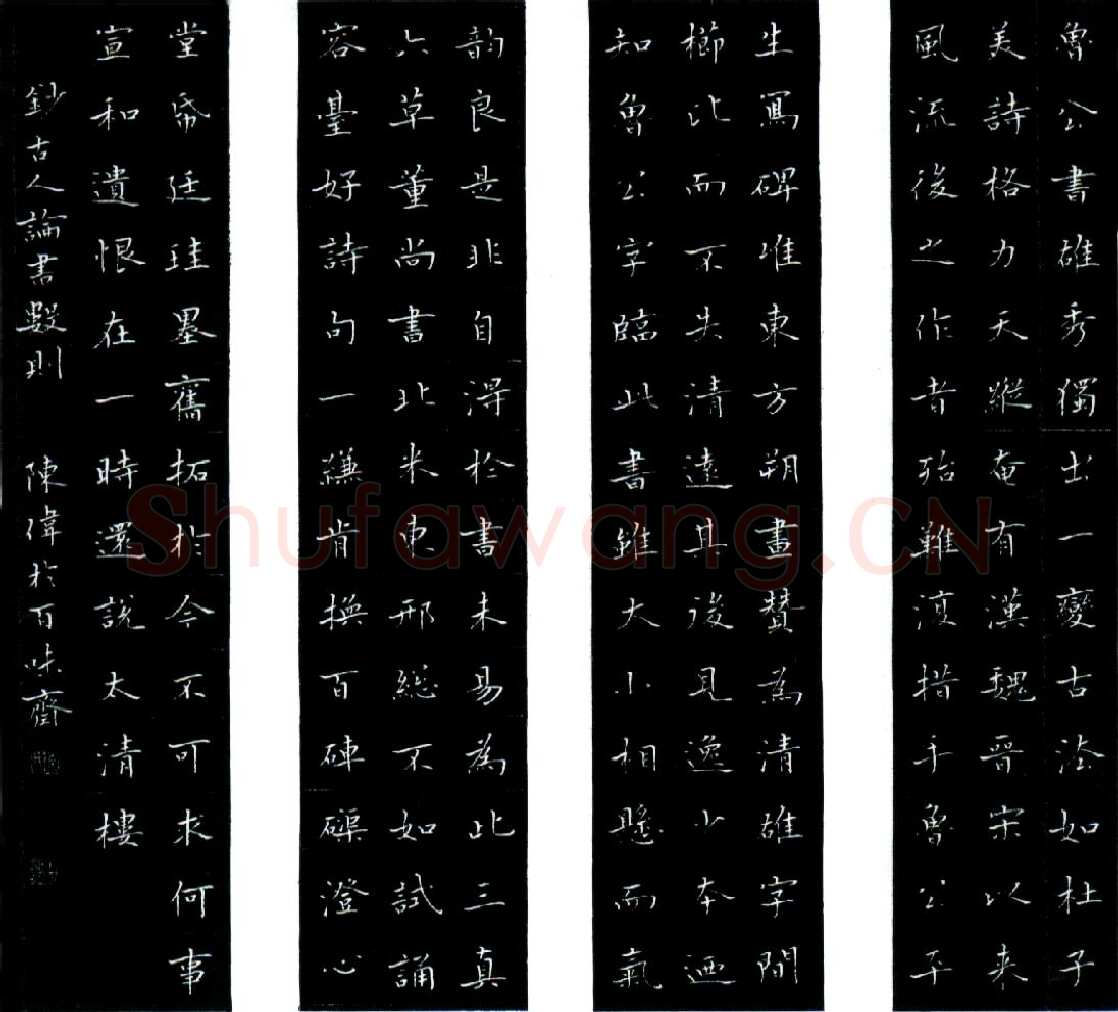 魯公書雄秀獨出一變古法如杜子
美詩格力天縱奄有漢魏晉宋以來
風流後之作者殆難復措手魯公平
生寫碑唯東方朔畫贊為清雄字間
櫛比而不失清遠其後見逸少本迺
知魯公字臨此書雖大小相懸而氣
韵良是非自得於書未易為此三真
六草董尚書北米東邢總不如試誦
容臺好詩句一縑肯換百硨磲澄心
堂帋廷珪墨舊拓於今不可求何事
宣和遺恨在一時還說太清樓
鈔古人論書數則 陳偉於百味齋
Shufawang.CN